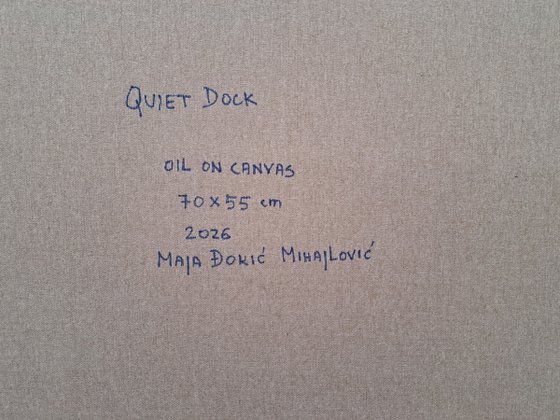 QUIET DOCK
OIL ON CANVAS
70 x 55 cm
2026
MAJA ĐOKIĆ MIHAJLOVIĆ